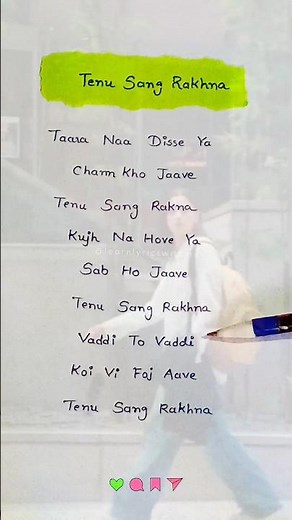 Tenu Sang Rakhna
Taara Naa Disse Ya
Chann Kho Jaave
Tenu Sang Rakna
Kujh Na Hove Ya
Sab Ho Jaave
Tenu Sang Rakhna
Vaddi To Vaddi
Koi Vi Foj Aave
Tenu Sang Rakhna